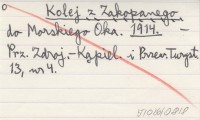 Kolej z Zakopanego
do Morskiego Oka. 1914. —
Prz. Zdroj.-Kąpiel. i Przew. Turyst.
13, nr 4.